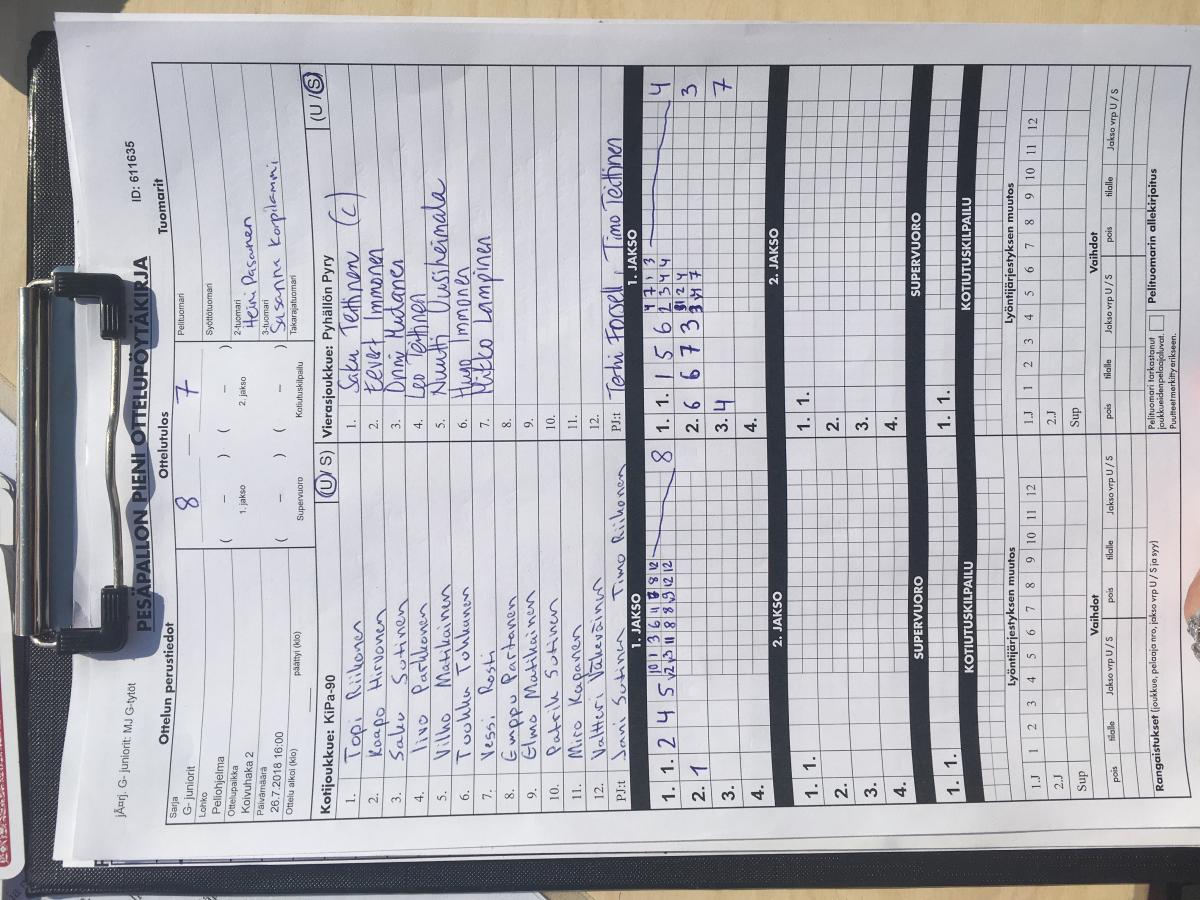 jÃ¤rj. G- juniorit: MJ G-tytöt
PESÄPALLON PIENI OTTELUPÖYTÄKIRJA
ID: 611635
Ottelun perustiedot
Ottelutulos
Tuomarit
Sarja
G- juniorit
Lohko
Peliohjelma
Ottelupaikka
Koivuhaka 2
Päivämäärä
26.7.2018 16:00
Ottelu alkoi (klo)
päättyi (klo)
8 — 7
( – ) ( – )
1. jakso 2. jakso
( – ) ( – )
Supervuoro Kotiutuskilpailu
Pelituomari
Syöttötuomari
2-tuomari
Heini Pasanen
3-tuomari
Susanna Korpilammi
Takarajatuomari
Kotijoukkue: KiPa-90 (U/ S)
1. Topi Riikonen
2. Kaapo Hirvonen
3. Saku Sutinen
4. Iivo Parkkonen
5. Vilho Matikainen
6. Tuukka Tukkanen
7. Jessi Rosti
8. Emppu Partanen
9. Elmo Matikainen
10. Patrik Sutinen
11. Miro Kapanen
12. Valtteri Väkeväinen
PJ:t Jani Sutinen Timo Riikonen
Vierasjoukkue: Pyhällön Pyry (U /S)
1. Saku Teittinen (c)
2. Eevert Immonen
3. Onni Mutanen
4. Leo Teittinen
5. Nuutti Uusiheimala
6. Hugo Immonen
7. Mitko Lampinen
8.
9.
10.
11.
12.
PJ:t Terhi Forsell, Timo Teittinen
1. JAKSO
1. 1. 2 4 5 8
2. 1
3.
4.
1. JAKSO
1. 1. 1 5 6 4
2. 6 6 7 3 3
3. 4 7
4.
2. JAKSO
1. 1.
2.
3.
4.
2. JAKSO
1. 1.
2.
3.
4.
SUPERVUORO
1. 1.
SUPERVUORO
1. 1.
KOTIUTUSKILPAILU
KOTIUTUSKILPAILU
Lyöntijärjestyksen muutos
1.J 1 2 3 4 5 6 7 8 9 10 11 12
2.J
Sup
Lyöntijärjestyksen muutos
1.J 1 2 3 4 5 6 7 8 9 10 11 12
2.J
Sup
Vaihdot
pois tilalle Jakso vrp U / S pois tilalle Jakso vrp U / S
Vaihdot
pois tilalle Jakso vrp U / S pois tilalle Jakso vrp U / S
Rangaistukset (joukkue, pelaaja nro, jakso vrp U / S ja syy)
Pelituomari tarkastanut
joukkueiden pelaajaluvat.
Puutteet merkitty erikseen.
Pelituomarin allekirjoitus